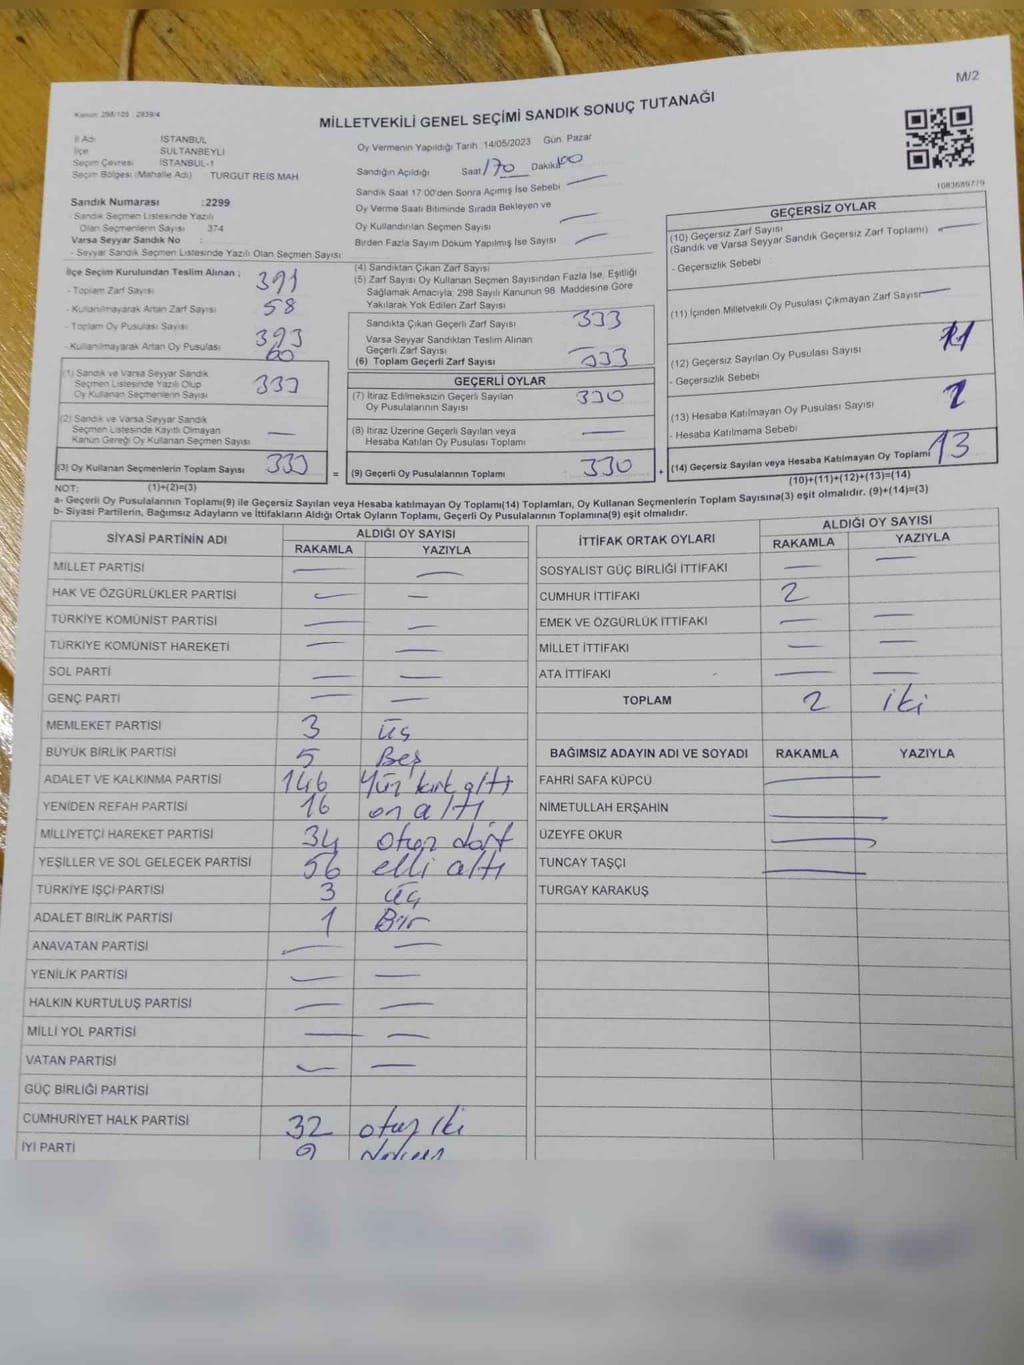 M/2
Kanun: 298/105 - 2839/4
MİLLETVEKİLİ GENEL SEÇİMİ SANDIK SONUÇ TUTANAĞI
1083689779
İl Adı İSTANBUL
İlçe SULTANBEYLİ
Seçim Çevresi İSTANBUL-1
Seçim Bölgesi (Mahalle Adı) TURGUT REİS MAH
Sandık Numarası :2299
- Sandık Seçmen Listesinde Yazılı
Olan Seçmenlerin Sayısı 374
Varsa Seyyar Sandık No :
- Seyyar Sandık Seçmen Listesinde Yazılı Olan Seçmen Sayısı
Oy Vermenin Yapıldığı Tarih 14/05/2023 Gün. Pazar
Sandığın Açıldığı Saat Dakika
Sandık Saat 17:00'den Sonra Açımış İse Sebebi —
Oy Verme Saati Bitiminde Sırada Bekleyen ve
Oy Kullandırılan Seçmen Sayısı —
Birden Fazla Sayım Döküm Yapılmış İse Sayısı —
İlçe Seçim Kurulundan Teslim Alınan ;
- Toplam Zarf Sayısı 391
- Kullanılmayarak Artan Zarf Sayısı 58
- Toplam Oy Pusulası Sayısı 393
- Kullanılmayarak Artan Oy Pusulası 60
(1) Sandık ve Varsa Seyyar Sandık
Seçmen Listesinde Yazılı Olup
Oy Kullanan Seçmenlerin Sayısı 333
(2) Sandık ve Varsa Seyyar Sandık
Seçmen Listesinde Kayıtlı Olmayan
Kanun Gereği Oy Kullanan Seçmen Sayısı —
(3) Oy Kullanan Seçmenlerin Toplam Sayısı 333
(4) Sandıktan Çıkan Zarf Sayısı
(5) Zarf Sayısı Oy Kullanan Seçmen Sayısından Fazla İse, Eşitliği
Sağlamak Amacıyla; 298 Sayılı Kanunun 98. Maddesine Göre
Yakılarak Yok Edilen Zarf Sayısı
Sandıkta Çıkan Geçerli Zarf Sayısı 333
Varsa Seyyar Sandıktan Teslim Alınan
Geçerli Zarf Sayısı —
(6) Toplam Geçerli Zarf Sayısı 333
GEÇERLİ OYLAR
(7) İtiraz Edilmeksizin Geçerli Sayılan
Oy Pusulalarının Sayısı 330
(8) İtiraz Üzerine Geçerli Sayılan veya
Hesaba Katılan Oy Pusulası Toplamı —
= (9) Geçerli Oy Pusulalarının Toplamı 330 +
GEÇERSİZ OYLAR
(10) Geçersiz Zarf Sayısı —
(Sandık ve Varsa Seyyar Sandık Geçersiz Zarf Toplamı)
- Geçersizlik Sebebi
(11) İçinden Milletvekili Oy Pusulası Çıkmayan Zarf Sayısı —
(12) Geçersiz Sayılan Oy Pusulası Sayısı 11
- Geçersizlik Sebebi
(13) Hesaba Katılmayan Oy Pusulası Sayısı 2
- Hesaba Katılmama Sebebi
(14) Geçersiz Sayılan veya Hesaba Katılmayan Oy Toplamı 13
(10)+(11)+(12)+(13)=(14)
NOT: (1)+(2)=(3)
a- Geçerli Oy Pusulalarının Toplamı(9) ile Geçersiz Sayılan veya Hesaba katılmayan Oy Toplamı(14) Toplamları, Oy Kullanan Seçmenlerin Toplam Sayısına(3) eşit olmalıdır. (9)+(14)=(3)
b- Siyasi Partilerin, Bağımsız Adayların ve İttifakların Aldığı Ortak Oyların Toplamı, Geçerli Oy Pusulalarının Toplamına(9) eşit olmalıdır.
SİYASİ PARTİNİN ADI ALDIĞI OY SAYISI
RAKAMLA YAZIYLA
MİLLET PARTİSİ — —
HAK VE ÖZGÜRLÜKLER PARTİSİ — —
TÜRKİYE KOMÜNİST PARTİSİ — —
TÜRKİYE KOMÜNİST HAREKETİ — —
SOL PARTİ — —
GENÇ PARTİ — —
MEMLEKET PARTİSİ 3 üç
BÜYÜK BİRLİK PARTİSİ 5 Beş
ADALET VE KALKINMA PARTİSİ 146 Yüz kırk altı
YENİDEN REFAH PARTİSİ 16 on altı
MİLLİYETÇİ HAREKET PARTİSİ 34 otuz dört
YEŞİLLER VE SOL GELECEK PARTİSİ 56 elli altı
TÜRKİYE İŞÇİ PARTİSİ 3 üç
ADALET BİRLİK PARTİSİ 1 Bir
ANAVATAN PARTİSİ — —
YENİLİK PARTİSİ — —
HALKIN KURTULUŞ PARTİSİ — —
MİLLİ YOL PARTİSİ — —
VATAN PARTİSİ — —
GÜÇ BİRLİĞİ PARTİSİ
CUMHURİYET HALK PARTİSİ 32 otuz iki
İYİ PARTİ
İTTİFAK ORTAK OYLARI ALDIĞI OY SAYISI
RAKAMLA YAZIYLA
SOSYALİST GÜÇ BİRLİĞİ İTTİFAKI — —
CUMHUR İTTİFAKI 2
EMEK VE ÖZGÜRLÜK İTTİFAKI — —
MİLLET İTTİFAKI — —
ATA İTTİFAKI — —
TOPLAM 2 iki
BAĞIMSIZ ADAYIN ADI VE SOYADI RAKAMLA YAZIYLA
FAHRİ SAFA KÜPCÜ —
NİMETULLAH ERŞAHİN —
ÜZEYFE OKUR —
TUNCAY TAŞÇI —
TURGAY KARAKUŞ